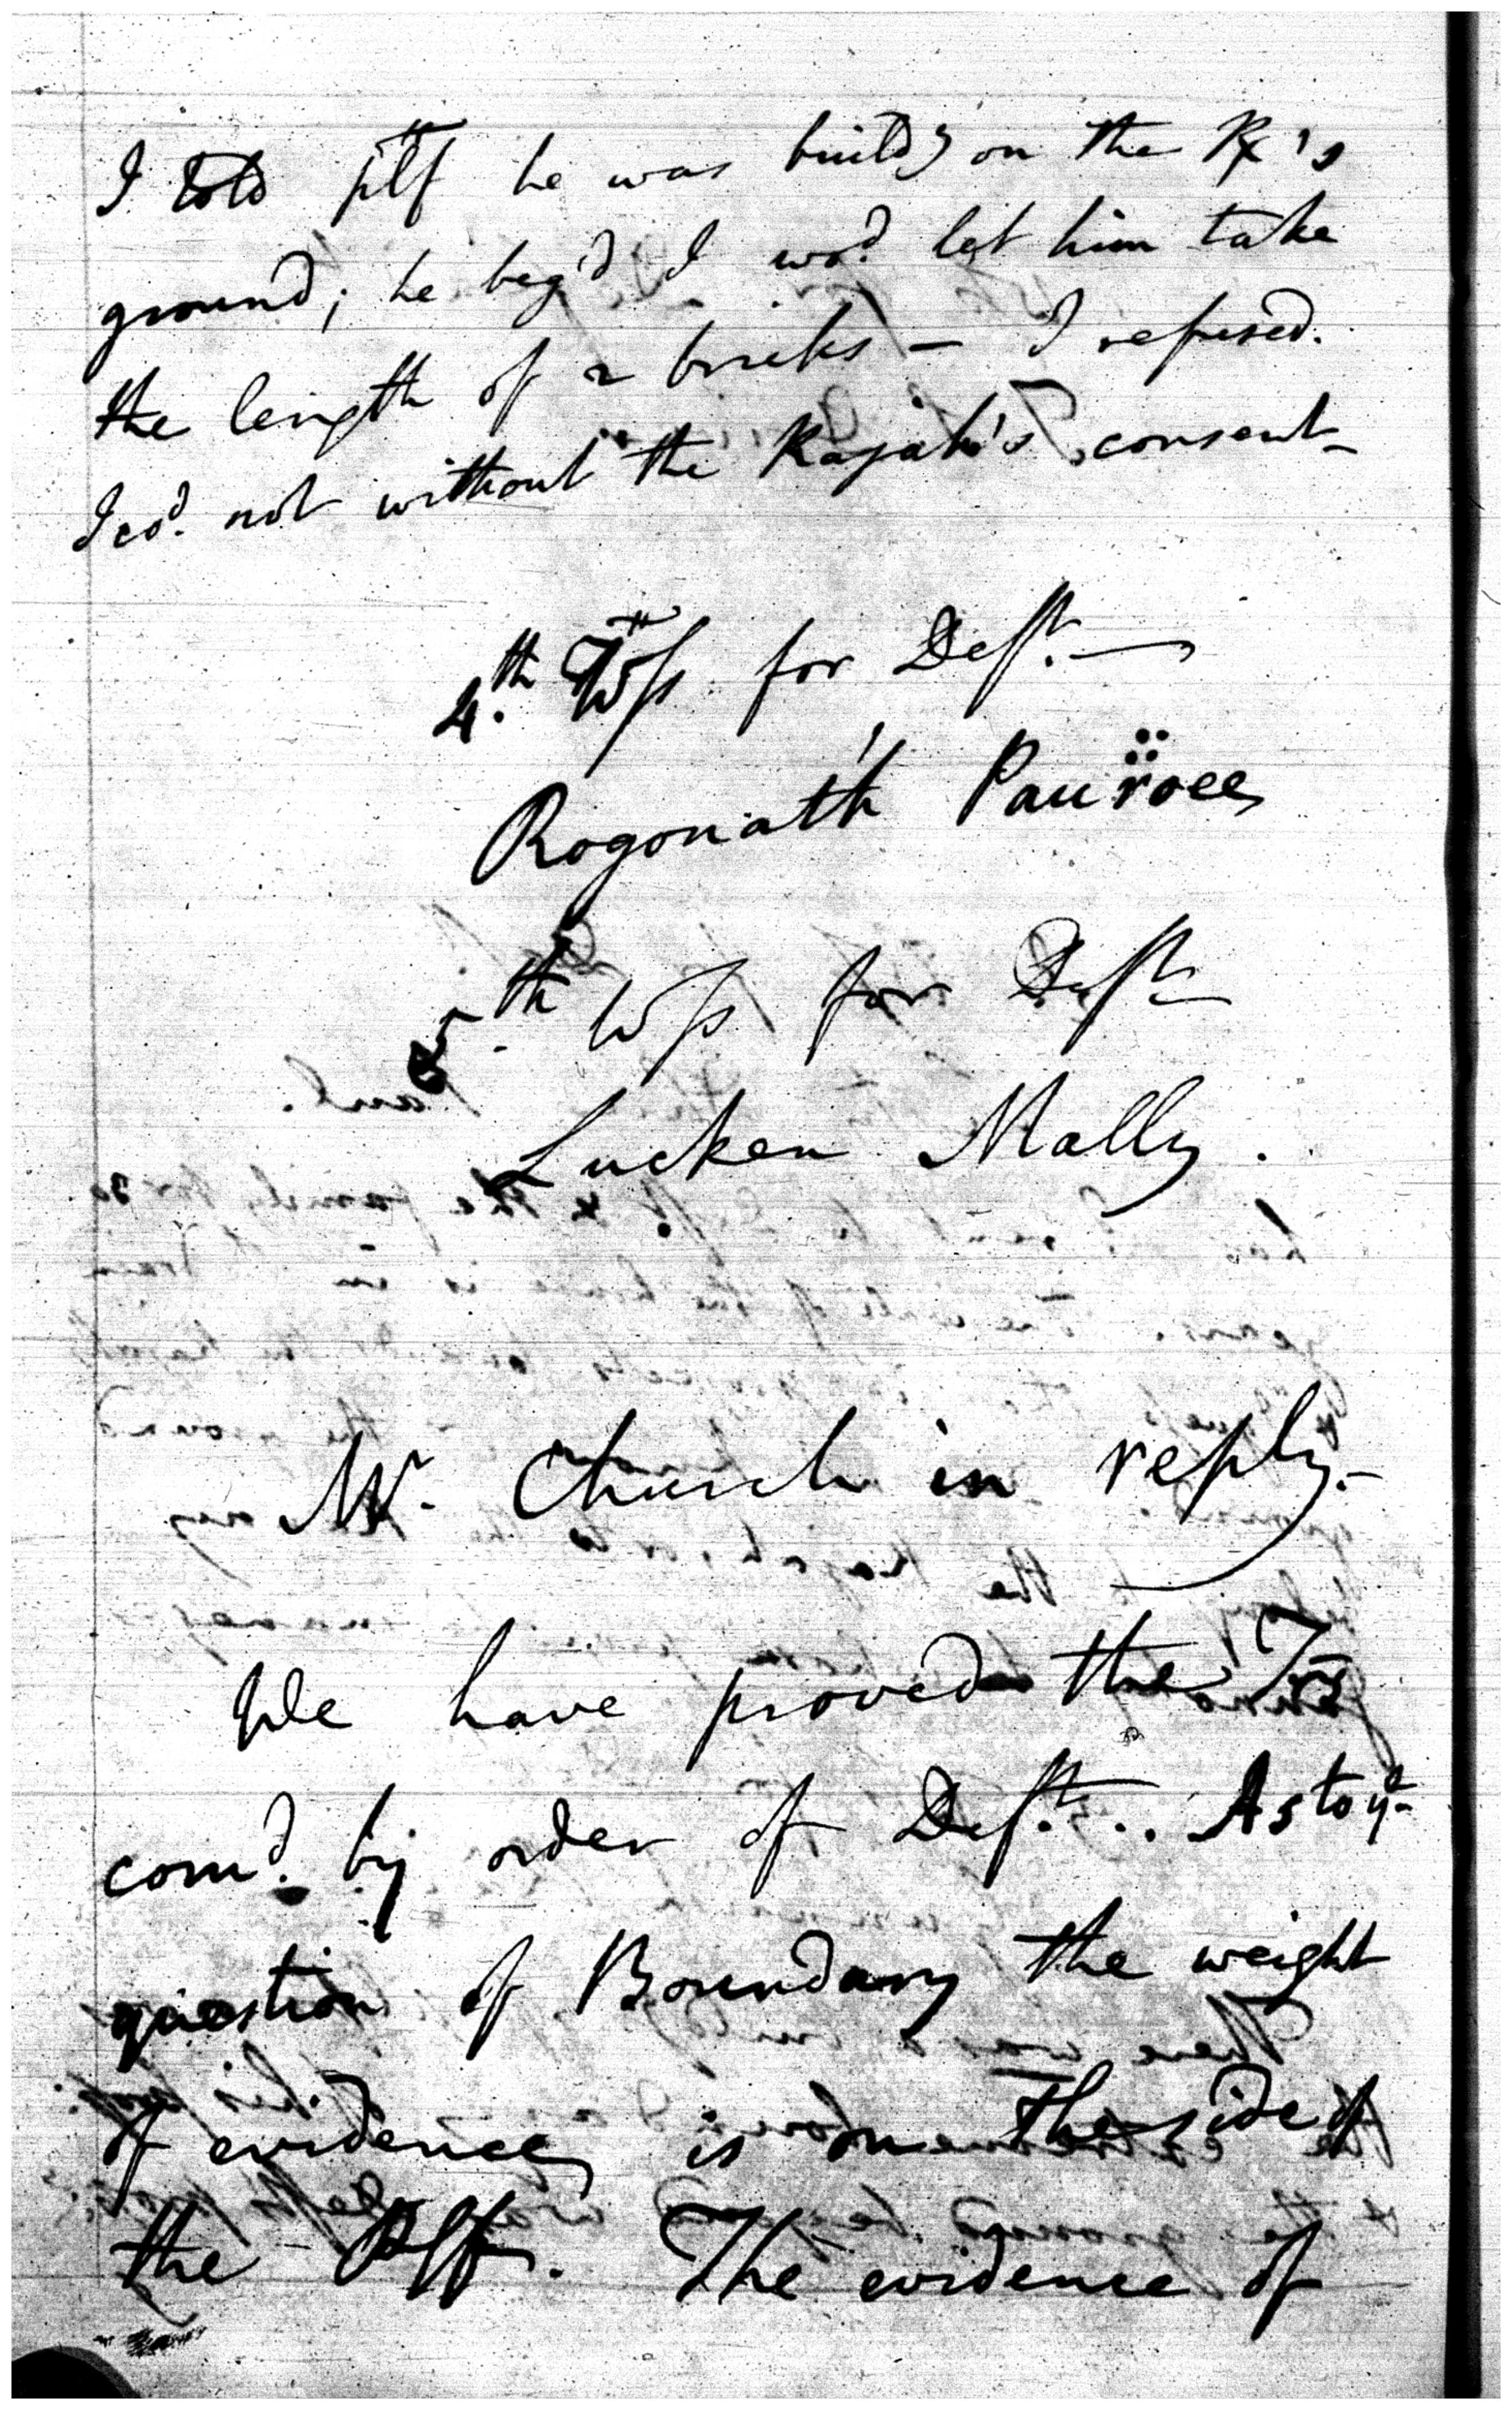 I told plff he was build) on the Rx's
ground; he beg'd I wod. let him take
the length of 2 bricks — I refused.
I cod. not without the Rajah's consent —
4.th Wss for Deft. —
Rogonath Pauroee
5.th Wss for Deft.
Lucken Mally.
Mr. Church in reply. —
We have proved the Tres
com'd. by order of Deft... As to ye
question of Boundary the weight
of evidence is on the side of
the Plff. The evidence of